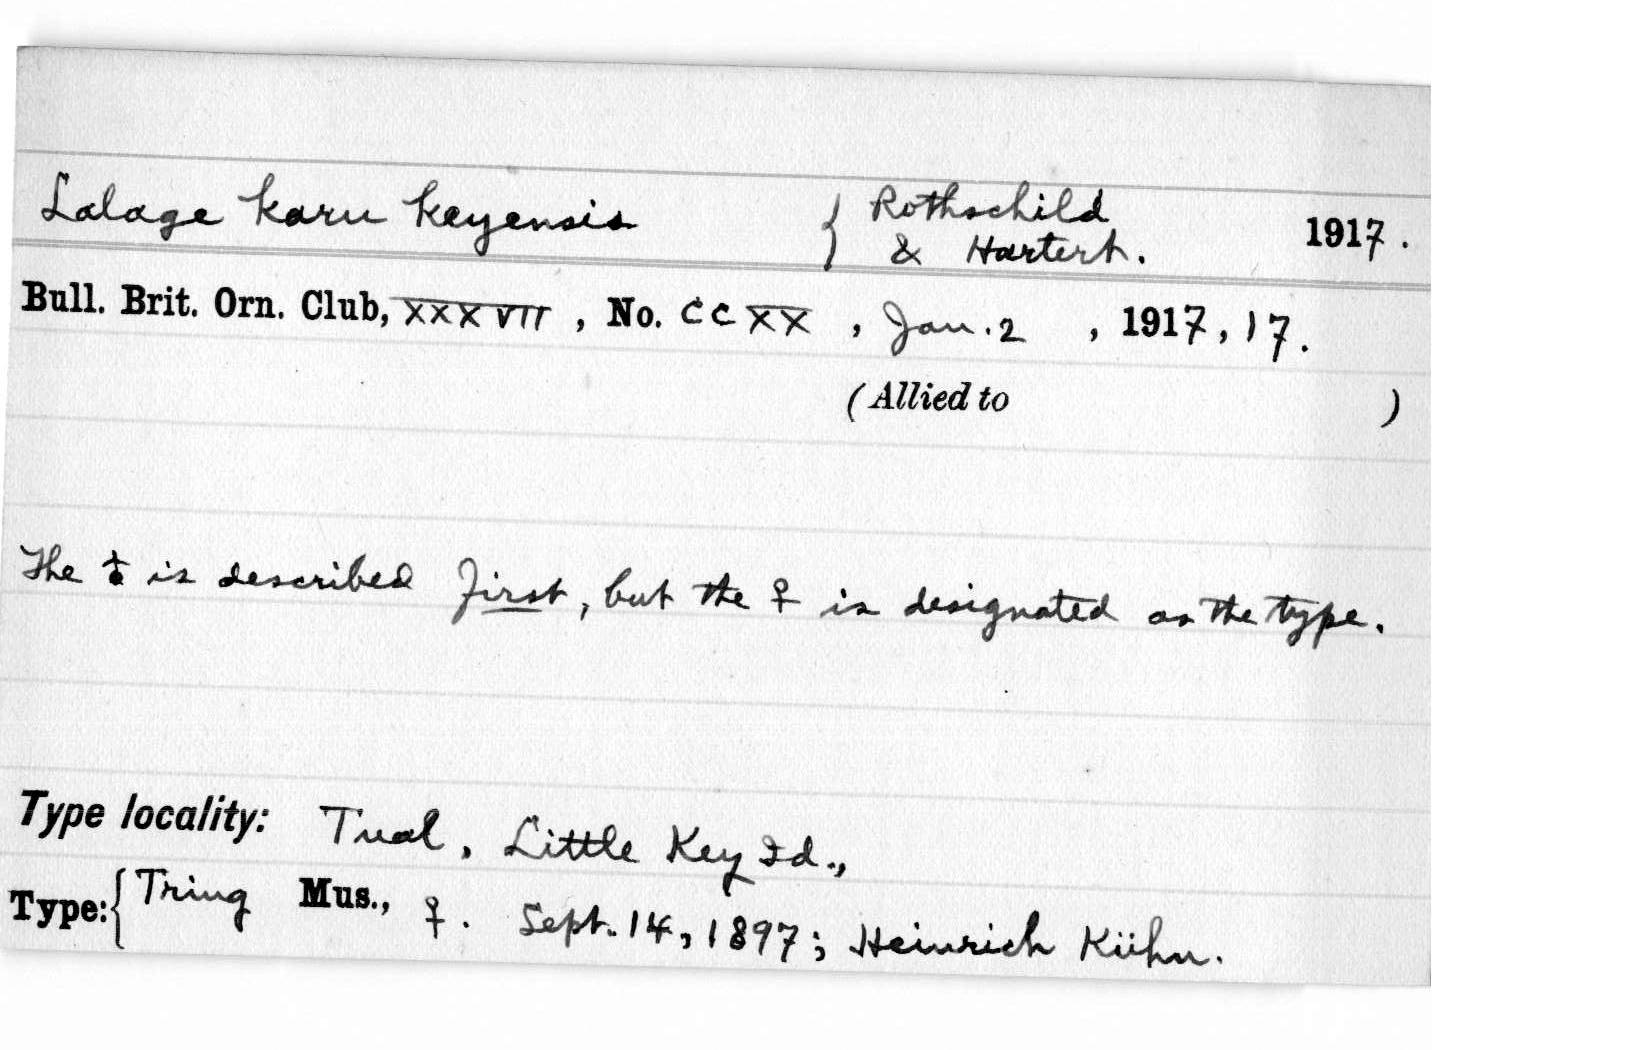 Lalage karu keyensis { Rothschild & Hartert. 1917.
Bull. Brit. Orn. Club, XXXVII, No. CCXX, Jan. 2, 1917, 17.
(Allied to )
The ♂ is described first, but the ♀ is designated as the type.
Type locality: Tual, Little Key Id.,
Type: { Tring Mus., ♀. Sept. 14, 1897; Heinrich Kühn.